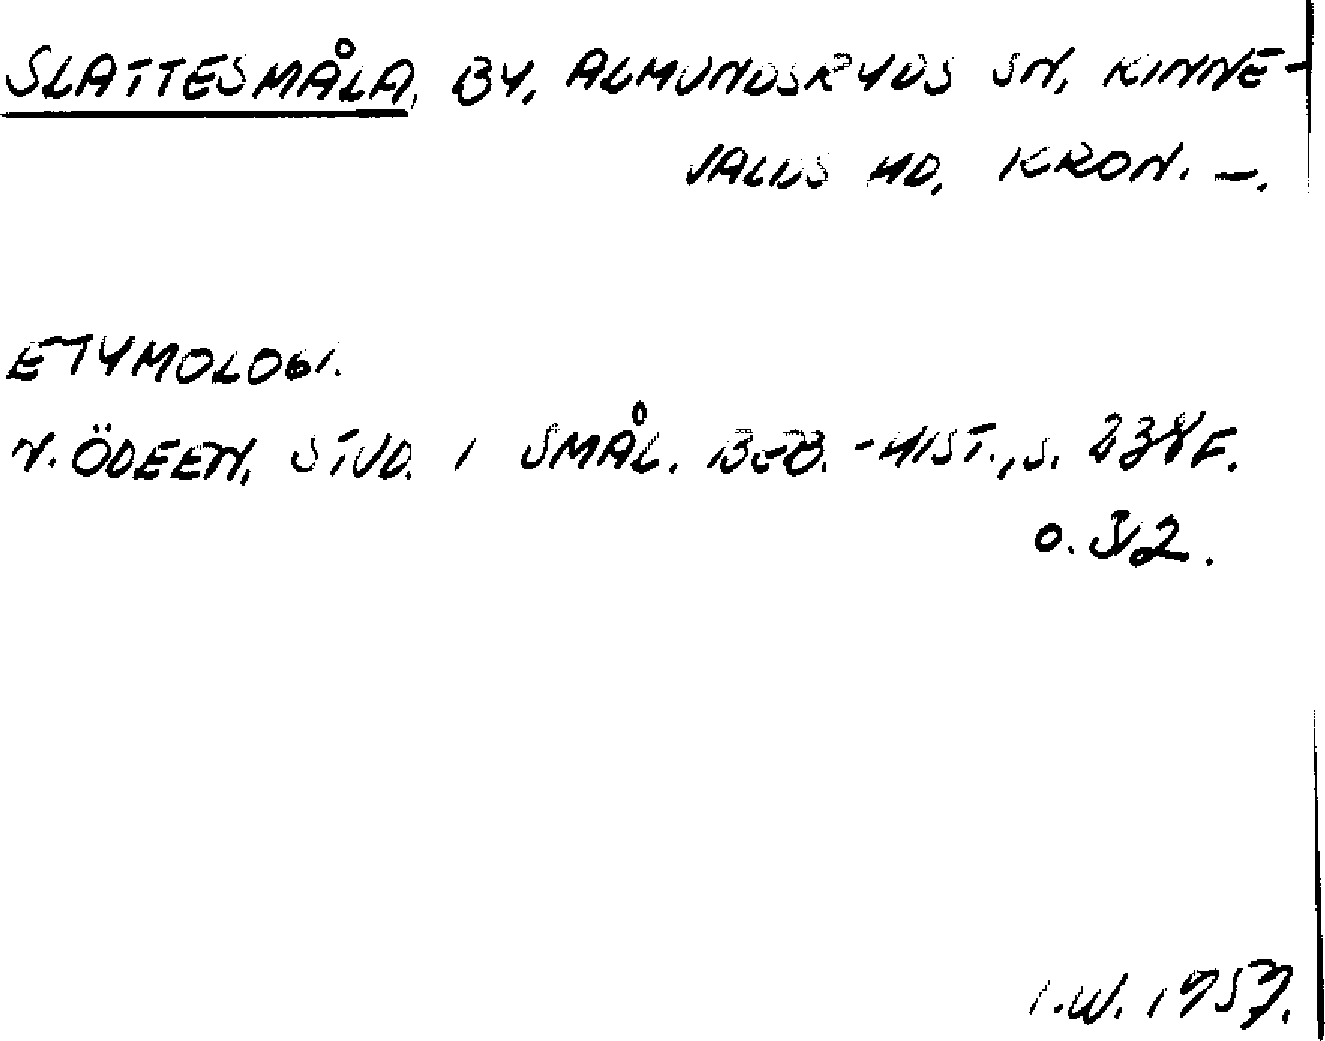 SLATTESMÅLA, BY, ALMUNDSRYDS SN, KINNE-
VALDS HD, KRON. –.
ETYMOLOGI.
N. ÖDEEN, STUD. I SMÅL. BEB.-HIST., S. 238 F.
O. 312.
I.W. 1957.